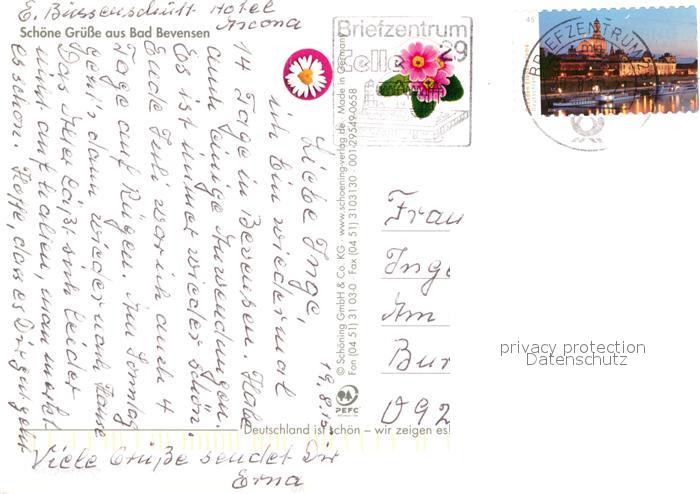 E. Büssenschütt Hotel
Ascona
Schöne Grüße aus Bad Bevensen
19.8.15.
Liebe Inge,
ich bin wieder mal
14 Tage in Bevensen. Habe
auch einige Anwendungen.
Es ist immer wieder schön.
Ende Juli war ich auch 4
Tage auf Rügen. Am Sonntag
geht's dann wieder nach Hause
Das Alter läßt sich leider
nicht aufhalten, man merkt
es schon. Hoffe, dass es Dir gut geht
Viele Grüße sendet Dir
Erna
© Schöning GmbH & Co. KG · www.schoening-verlag.de · Made in Germany
Fon (04 51) 31 03-0 · Fax (04 51) 3103130 · 001-29549-0658
PEFC
Deutschland ist schön – wir zeigen es!
Briefzentrum
29
Celle
45
BRIEFZENTRUM
Frau
Inge
Am
Bur
092
privacy protection
Datenschutz